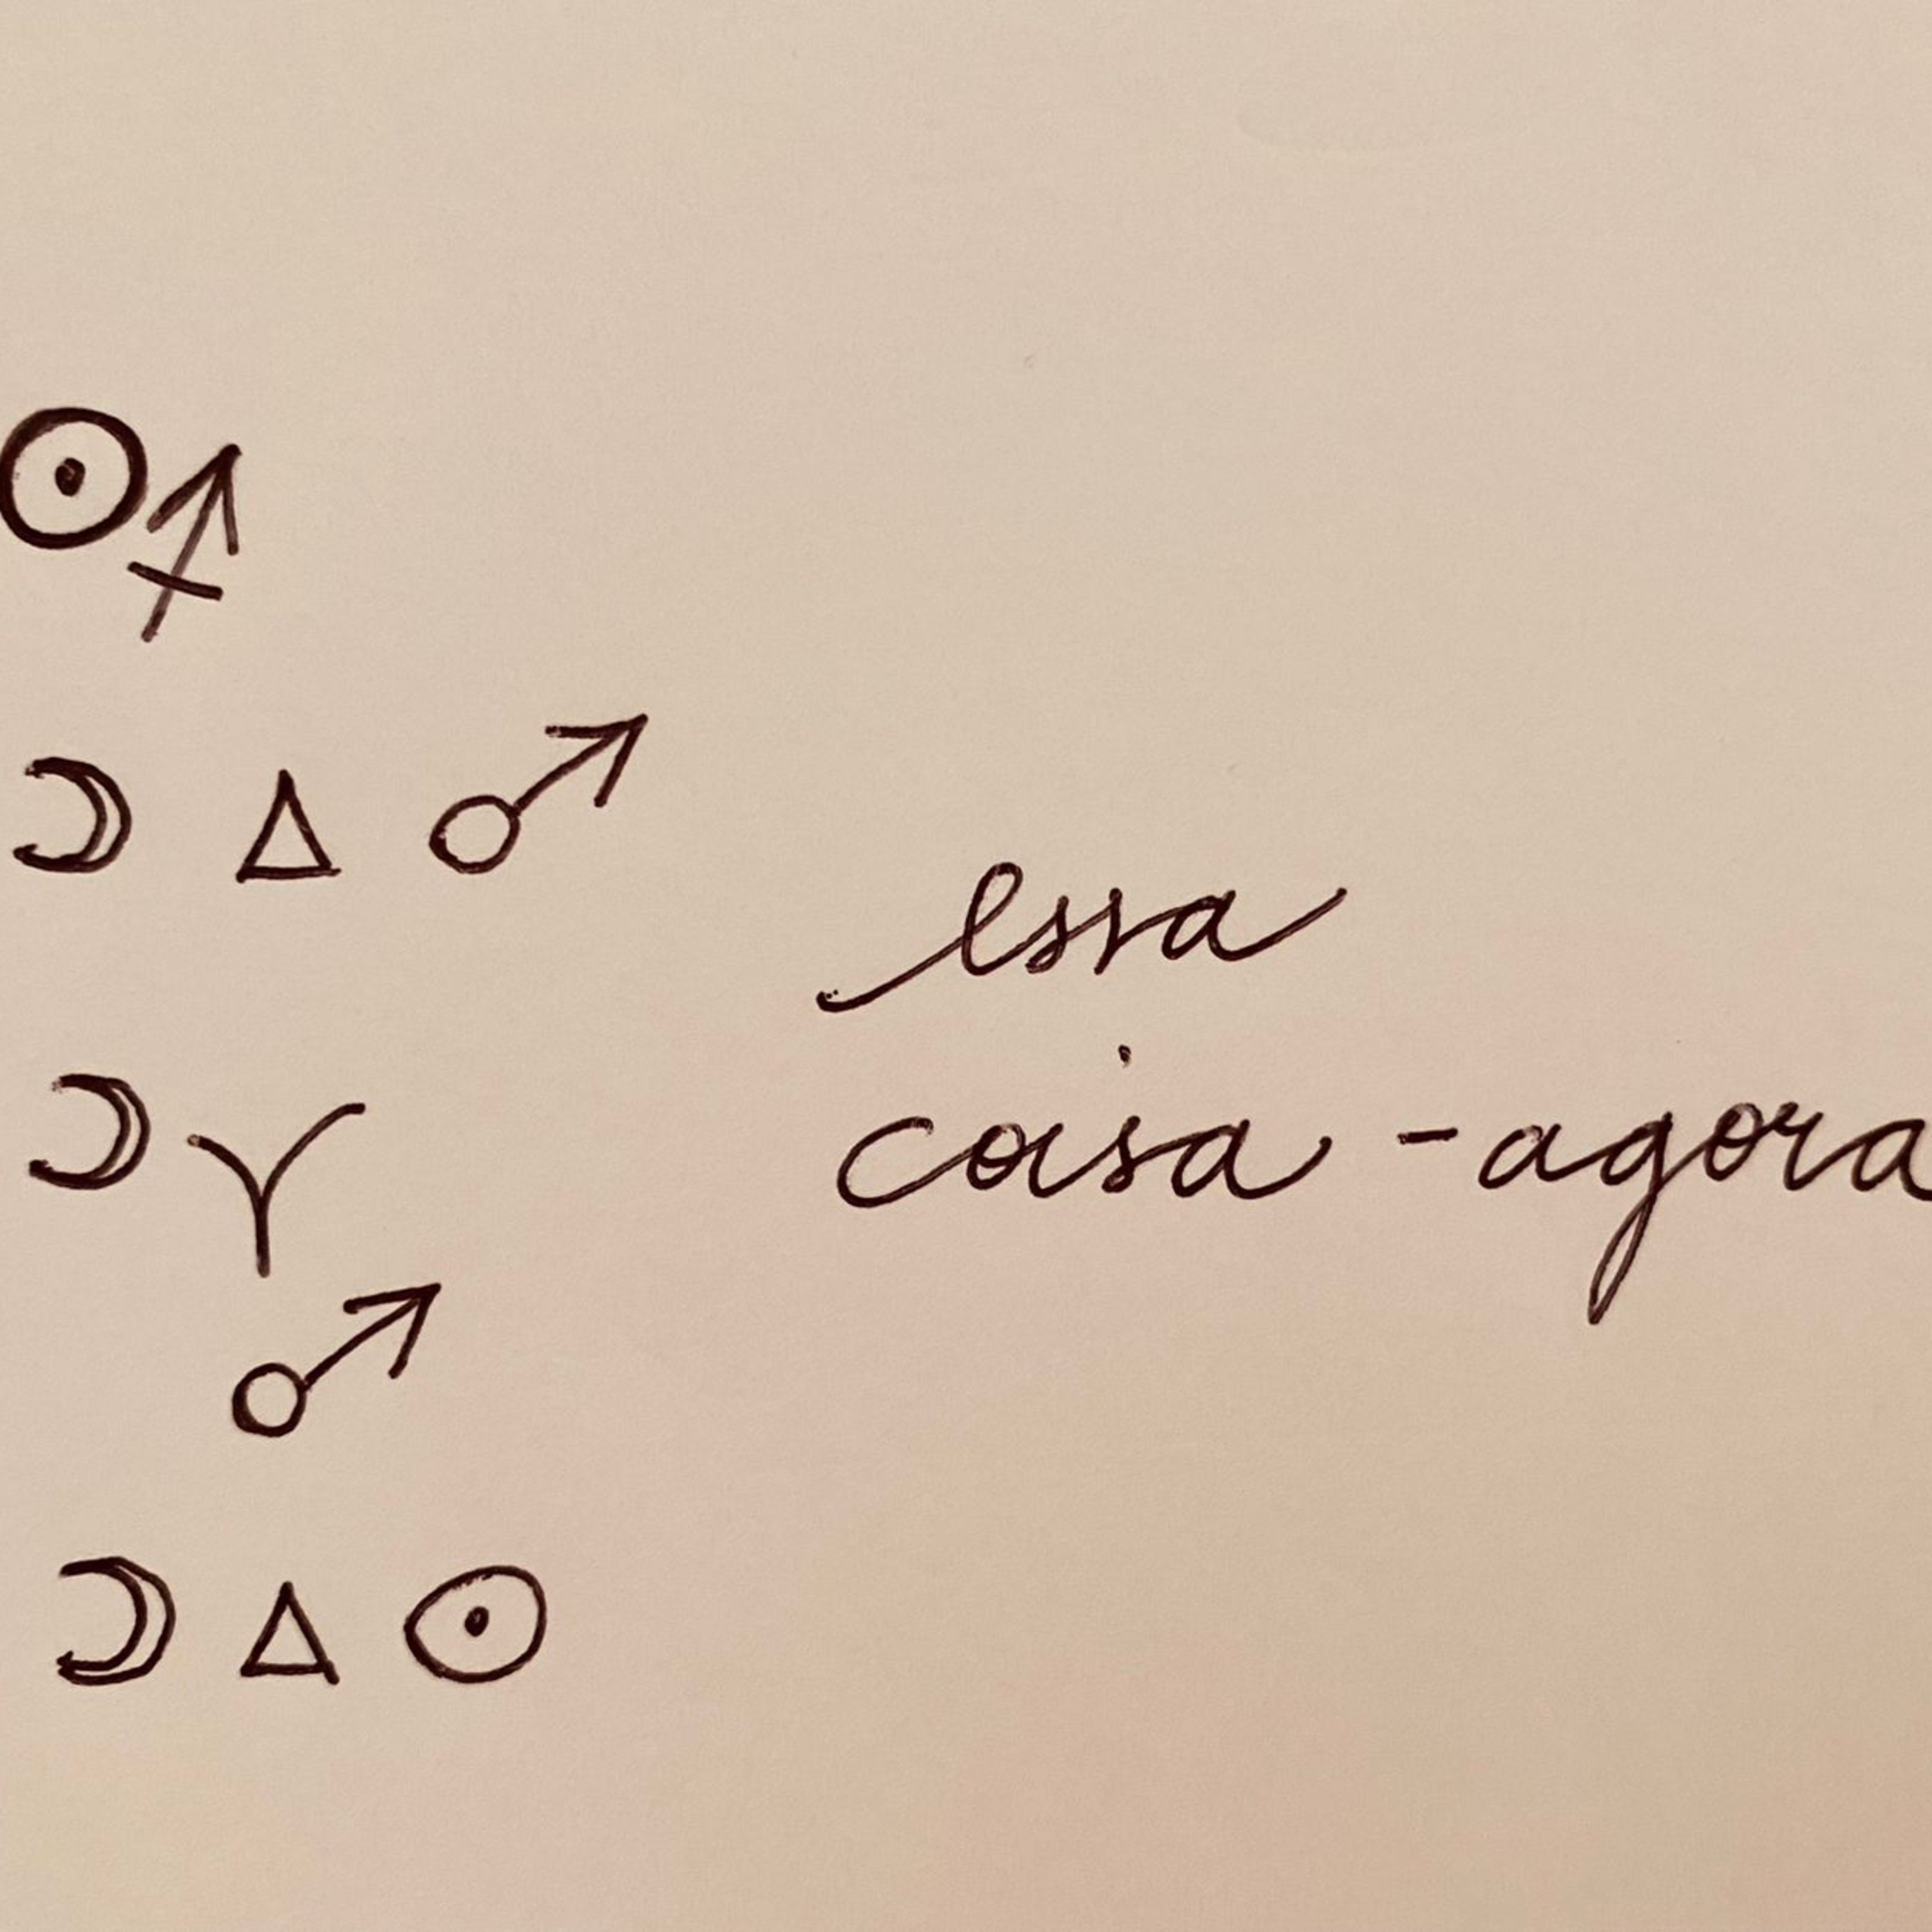 ☉♐
☽ △ ♂
essa
☽♈
coisa - agora
♂
☽ △ ☉